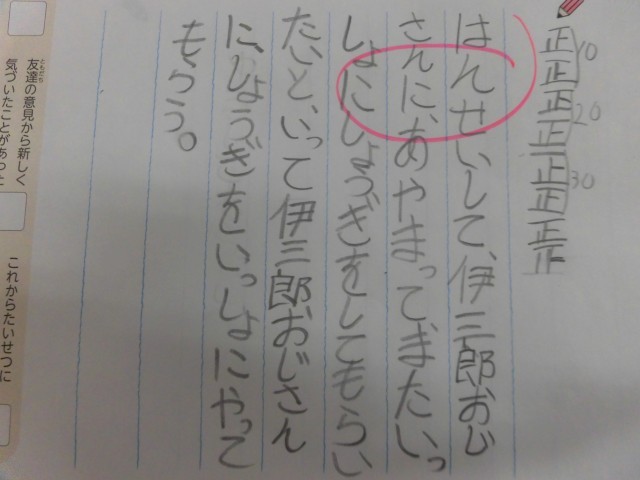 正正正正正正正正
10
20
30
はんせいして、伊三郎おじ
さんに、あやまって、またいっ
しょにしょうぎをしてもらい
たいと、いって伊三郎おじさん
に、しょうぎをいっしょにやって
もらう。
友達の意見から新しく
気づいたことがあった
これからたいせつに